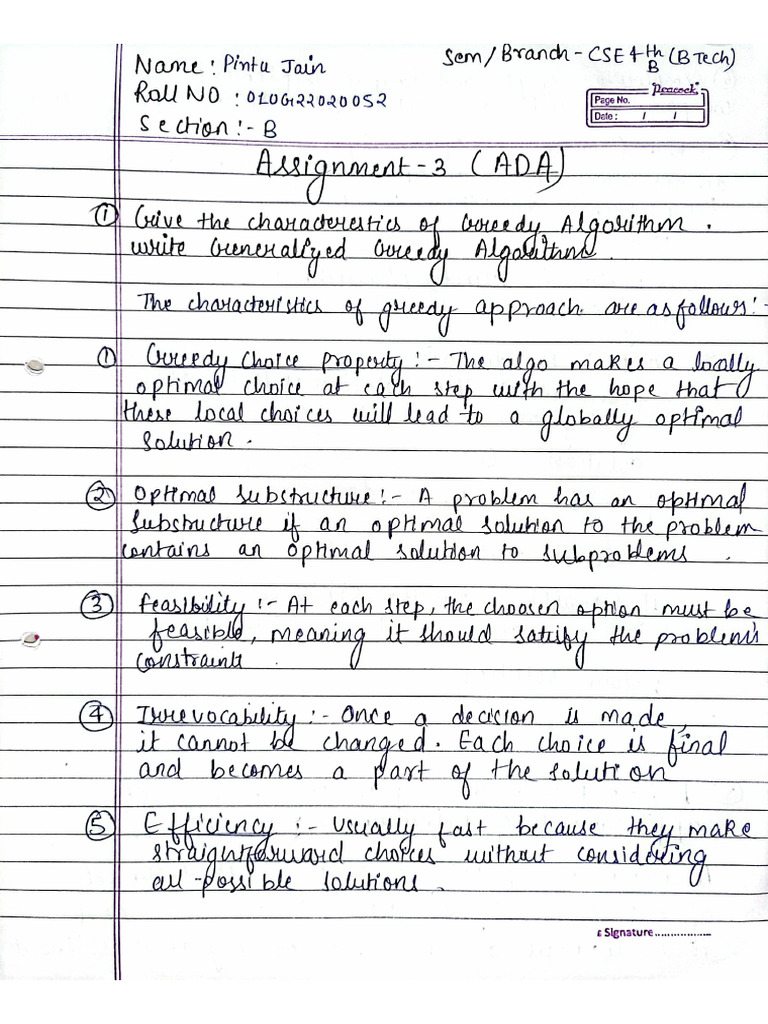 Name: Pintu Jain
Sem/Branch - CSE 4th (B Tech)
B
Roll NO : 0101G22020052
Peacock
Page No.
Date : / /
Section:- B
Assignment-3 (ADA)
① Give the characterestics of Greedy Algorithm.
write Generalized Greedy Algorithm.
The characteristics of greedy approach are as follows:-
① Greedy choice property:- The algo makes a locally
optimal choice at each step with the hope that
these local choices will lead to a globally optimal
solution.
② Optimal substructure:- A problem has an optimal
substructure if an optimal solution to the problem
contains an optimal solution to subproblems .
③ feasibility:- At each step, the choosen option must be
feasible, meaning it should satisfy the problem's
constraints
④ Irrevocability:- Once a decision is made,
it cannot be changed. Each choice is final
and becomes a part of the solution
⑤ Efficiency:- Usually fast because they make
straightforward choices without considering
all possible solutions.
Signature..................